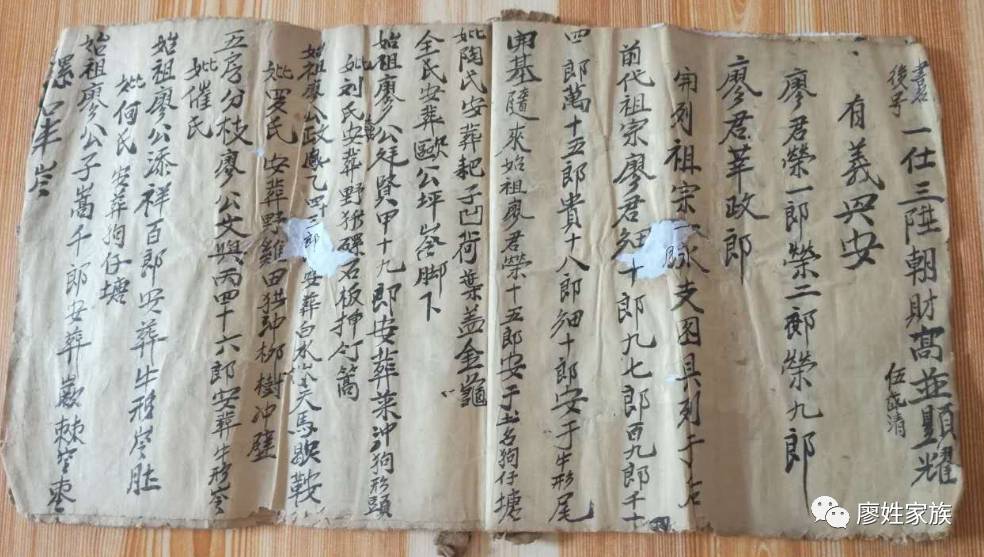 書名
後子
一仕三陞朝財高並顯耀
伍氏清
有義興安
廖君榮一郎榮二郎榮九郎
廖君莘政郎
開列祖宗一脉支图具列于右
前代祖宗廖君細十郎九七郎百九郎千十
四郎萬十五郎貴十八郎細十郎安于牛形尾
開基隨來始祖廖君榮十五郎安于土名狗仔塘
妣陶氏安葬耙子凹荷葉盖金龜
全氏安葬歐公坪岺脚下
始祖廖公廷賢甲十九郎安葬菜冲狗形頭
妣刘氏安葬野猪磥石板担竹篙
始祖廖公政 乙四三郎安葬白水岺天馬歇鞍
妣罗氏安葬野鷄田拱冲柳樹冲壁
五房分枝廖公文與丙四十六郎安葬牛形岺
妣催氏
始祖廖公添祥百郎安葬牛形岺肚
妣何氏安葬狗仔塘
始祖廖公子嵩千郎安葬 棘岺枣
廖姓家族